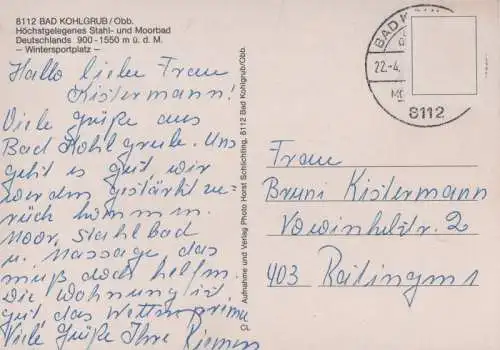 8112 BAD KOHLGRUB/Obb.
Höchstgelegenes Stahl- und Moorbad
Deutschlands 900-1550 m ü. d. M.
— Wintersportplatz —
Hallo liebe Frau
Kistermann!
Viele Grüße aus
Bad Kohlgrub. Uns
geht es gut, wir
werden gestärkt zu-
rück kommen.
Moor, Stahlbad
u. Massage, das
muß doch helfen.
Die Wohnung ist
gut, das Wetter prima
Viele Grüße Ihre
CL Aufnahme und Verlag Photo Horst Schlichtling, 8112 Bad Kohlgrub/Obb.
BAD KO
22.-4.
8112
Frau
Bruni Kistermann
2
403 Ratingen